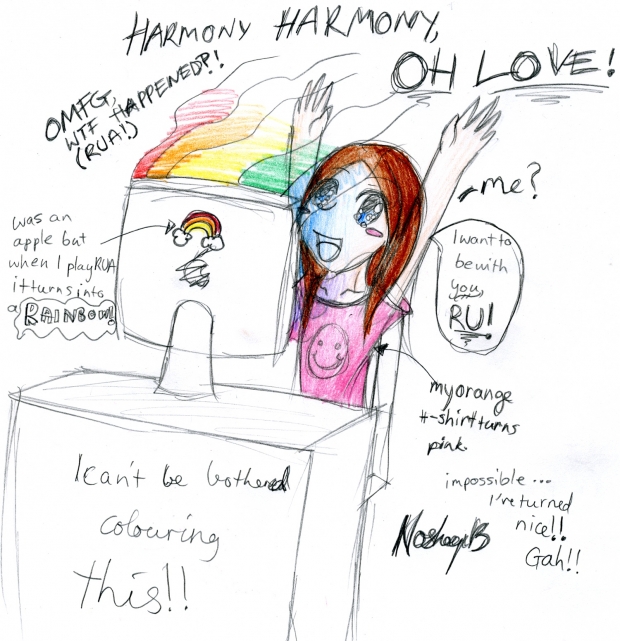 HARMONY HARMONY,
OH LOVE!
OMFG,
WTF HAPPENED?!
(RUA!)
me?
was an
apple but
when I play RUA
it turns into
a RAINBOW!
I want to
be with
you,
RU!
my orange
t-shirt turns
pink.
I can't be bothered
colouring
this!!
impossible...
I've turned
nice!!
Gah!!